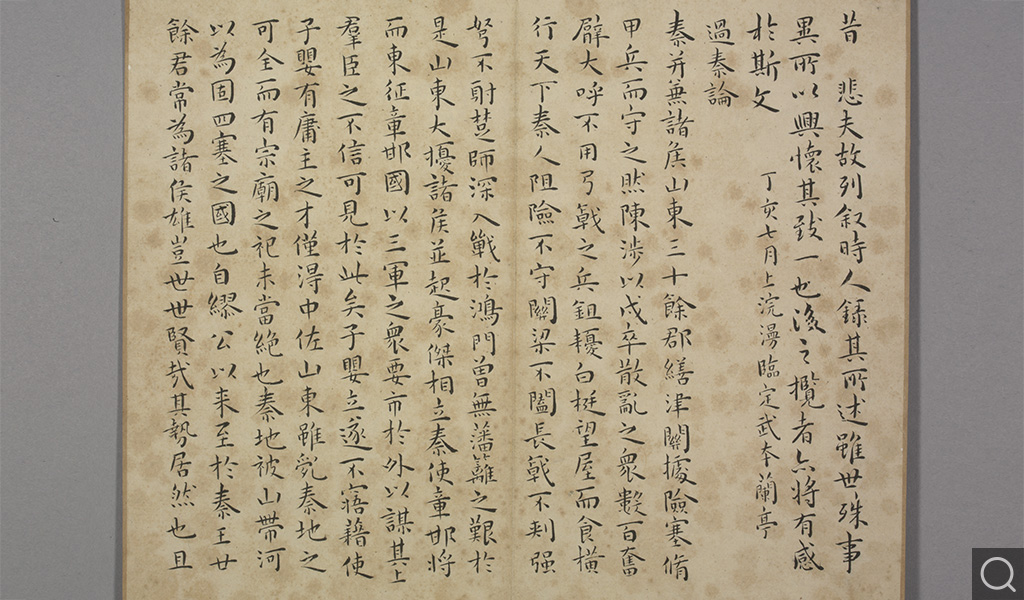 昔 悲夫故列叙時人錄其所述雖世殊事
異所以興懷其致一也後之攬者亦將有感
於斯文
丁亥七月上浣漫臨定武本蘭亭
過秦論
秦并兼諸侯山東三十餘郡繕津關據險塞脩
甲兵而守之然陳涉以戍卒散亂之衆數百奮
臂大呼不用弓戟之兵鉏耰白梃望屋而食橫
行天下秦人阻險不守關梁不闔長戟不刺强
弩不射楚師深入戰於鴻門曾無藩籬之艱於
是山東大擾諸侯並起豪傑相立秦使章邯將
而東征章邯國以三軍之衆要市於外以謀其上
羣臣之不信可見於此矣子嬰立遂不寤藉使
子嬰有庸主之才僅得中佐山東雖亂秦地之
可全而有宗廟之祀未當絶也秦地被山帶河
以為固四塞之國也自繆公以来至於秦王廿
餘君常為諸侯雄豈世世賢哉其勢居然也且